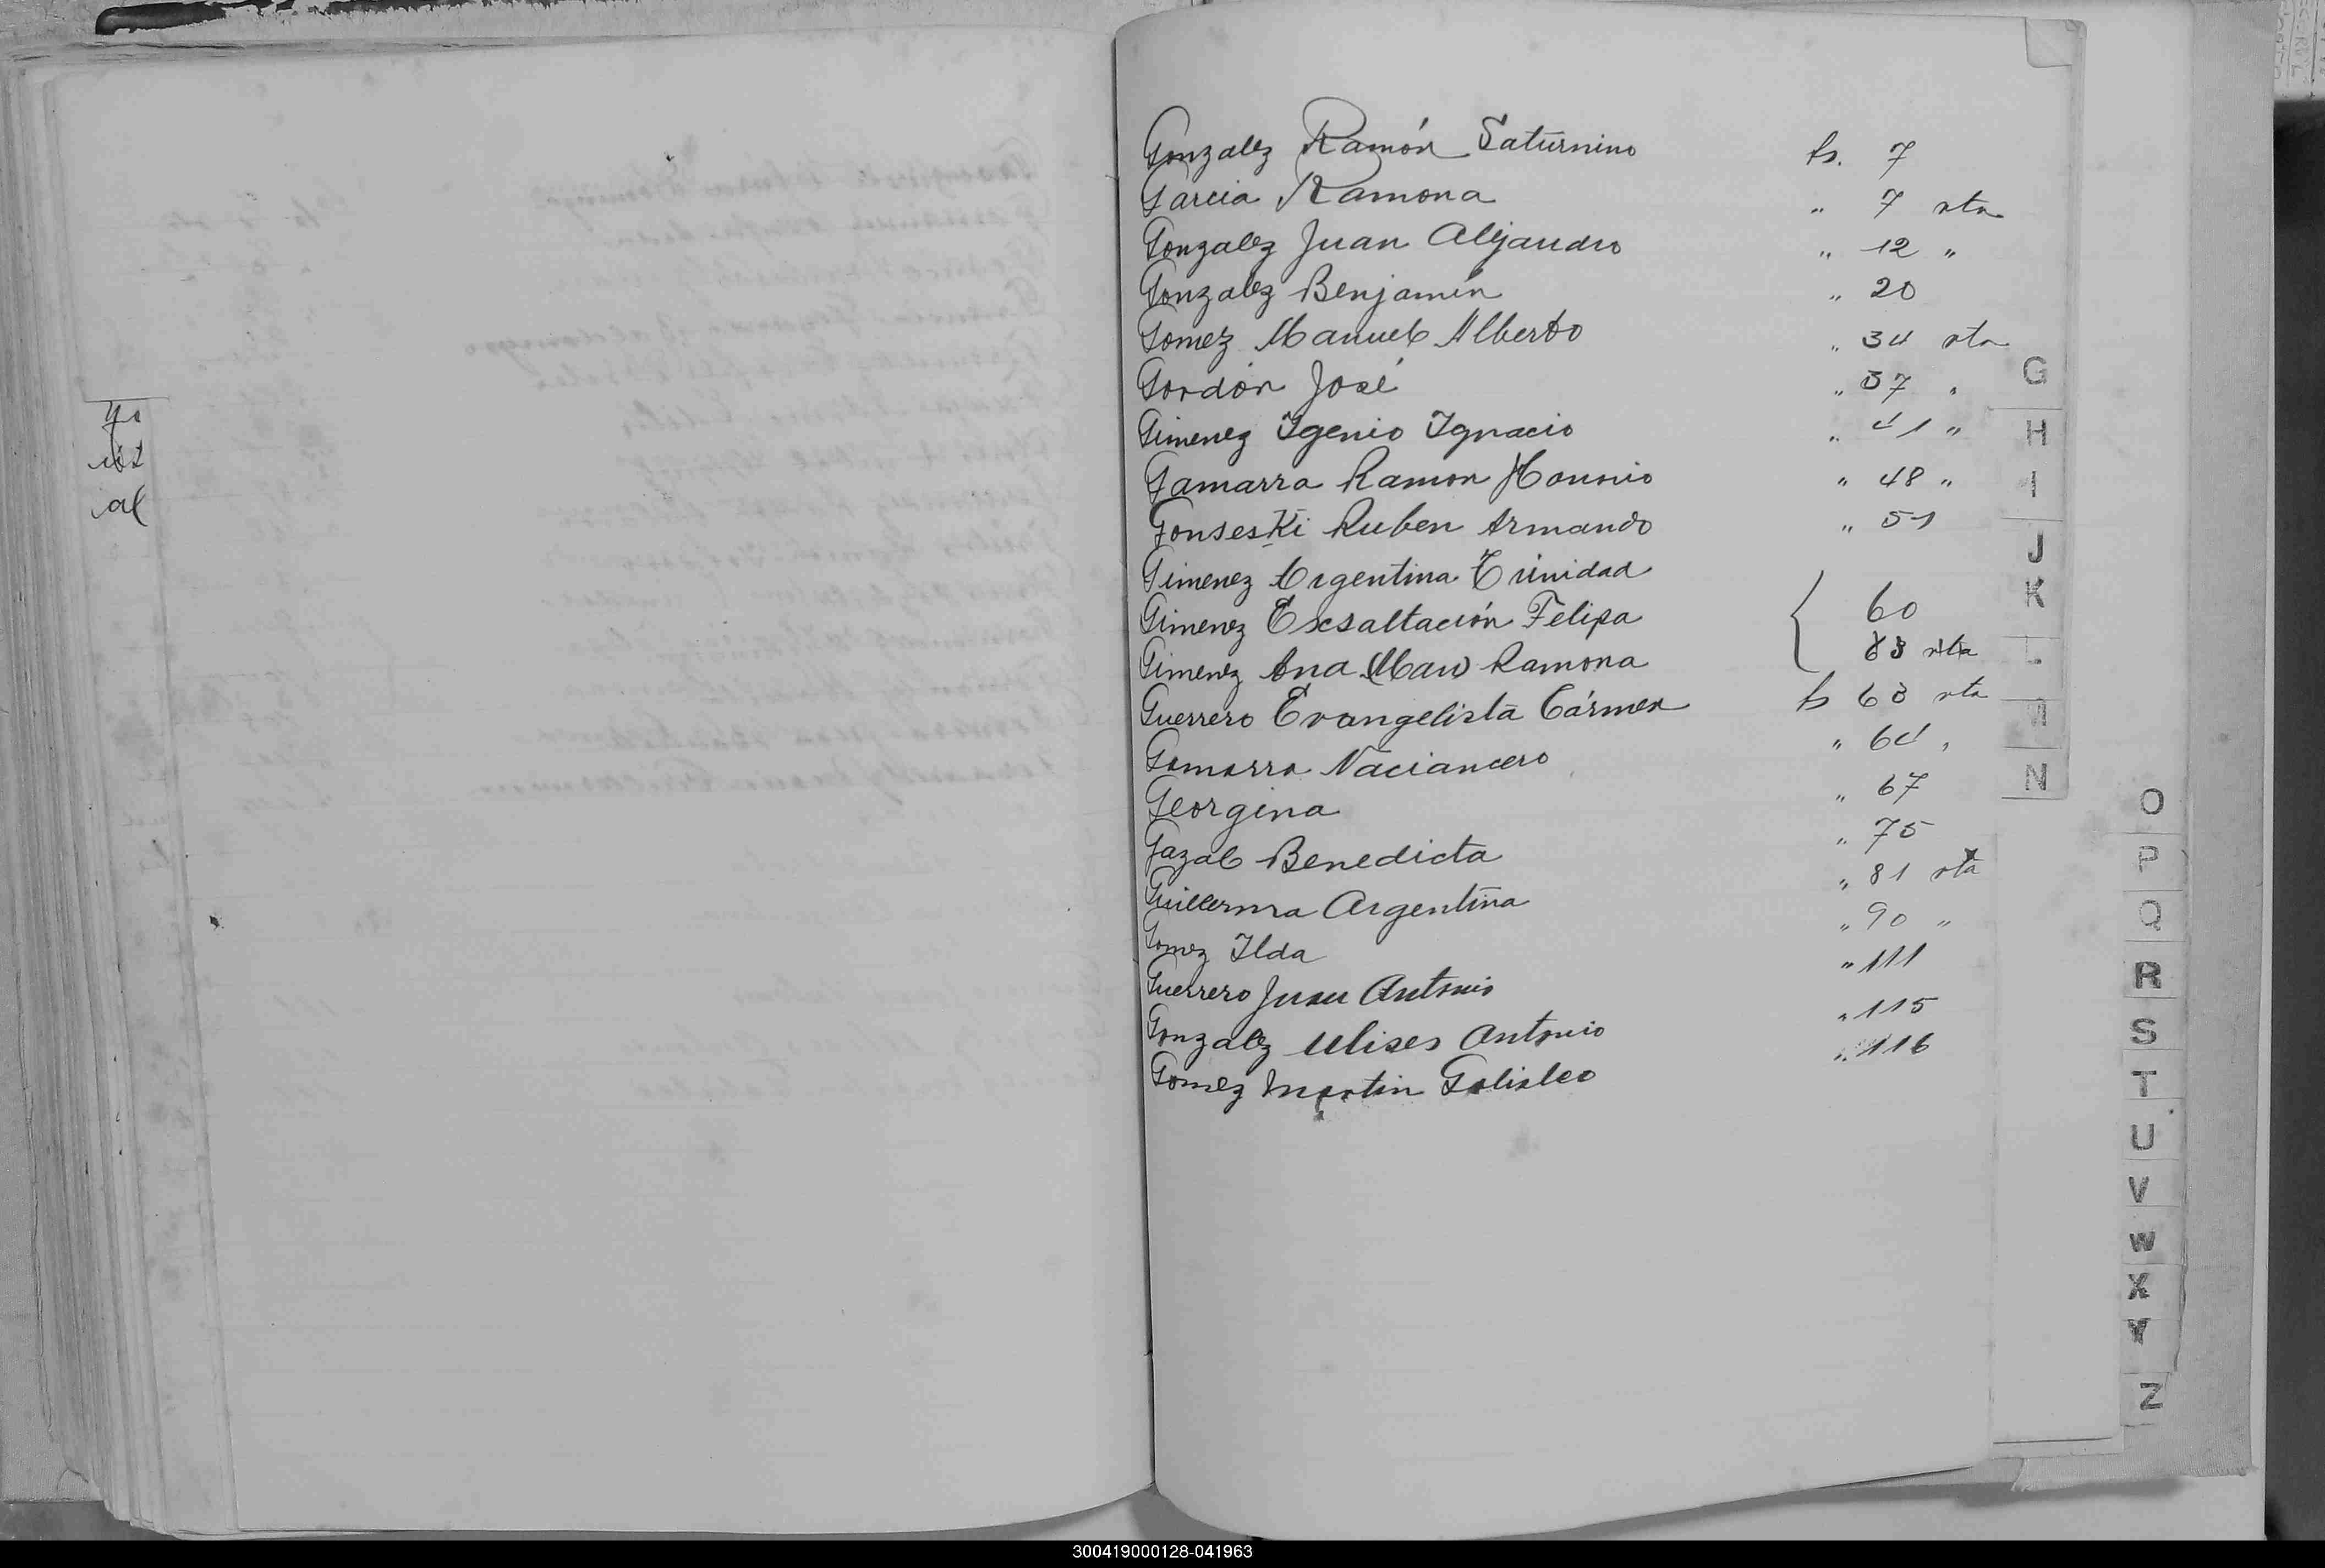 Gonzalez Ramón Saturnino fs. 7
Garcia Ramona " 7 vta
Gonzalez Juan Alejandro " 12 "
Gonzalez Benjamín " 20
Gomez Manuel Alberto " 34 vta
Gordón José " 37 "
Gimenez Igenio Ignacio " 41 "
Gamarra Ramon Honorio " 48 "
Gonseski Ruben Armando " 51
Gimenez Argentina Trinidad
Gimenez Exsaltación Felipa 60
Gimenez Ana Ramona 63 vta
Guerrero Evangelista Cármen fs 63 vta
Gamarra Naciancero " 64 "
Georgina " 67
Gazal Benedicta " 75
Guillerma Argentina " 81 vta
Gomez Ilda " 90 "
Guerrero Juan Antonio " 111
Gonzalez Ulises Antonio " 115
Gomez Martin Galialeo " 116
G
H
I
J
K
L
N
O
P
Q
R
S
T
U
V
W
X
Y
Z
300419000128-041963